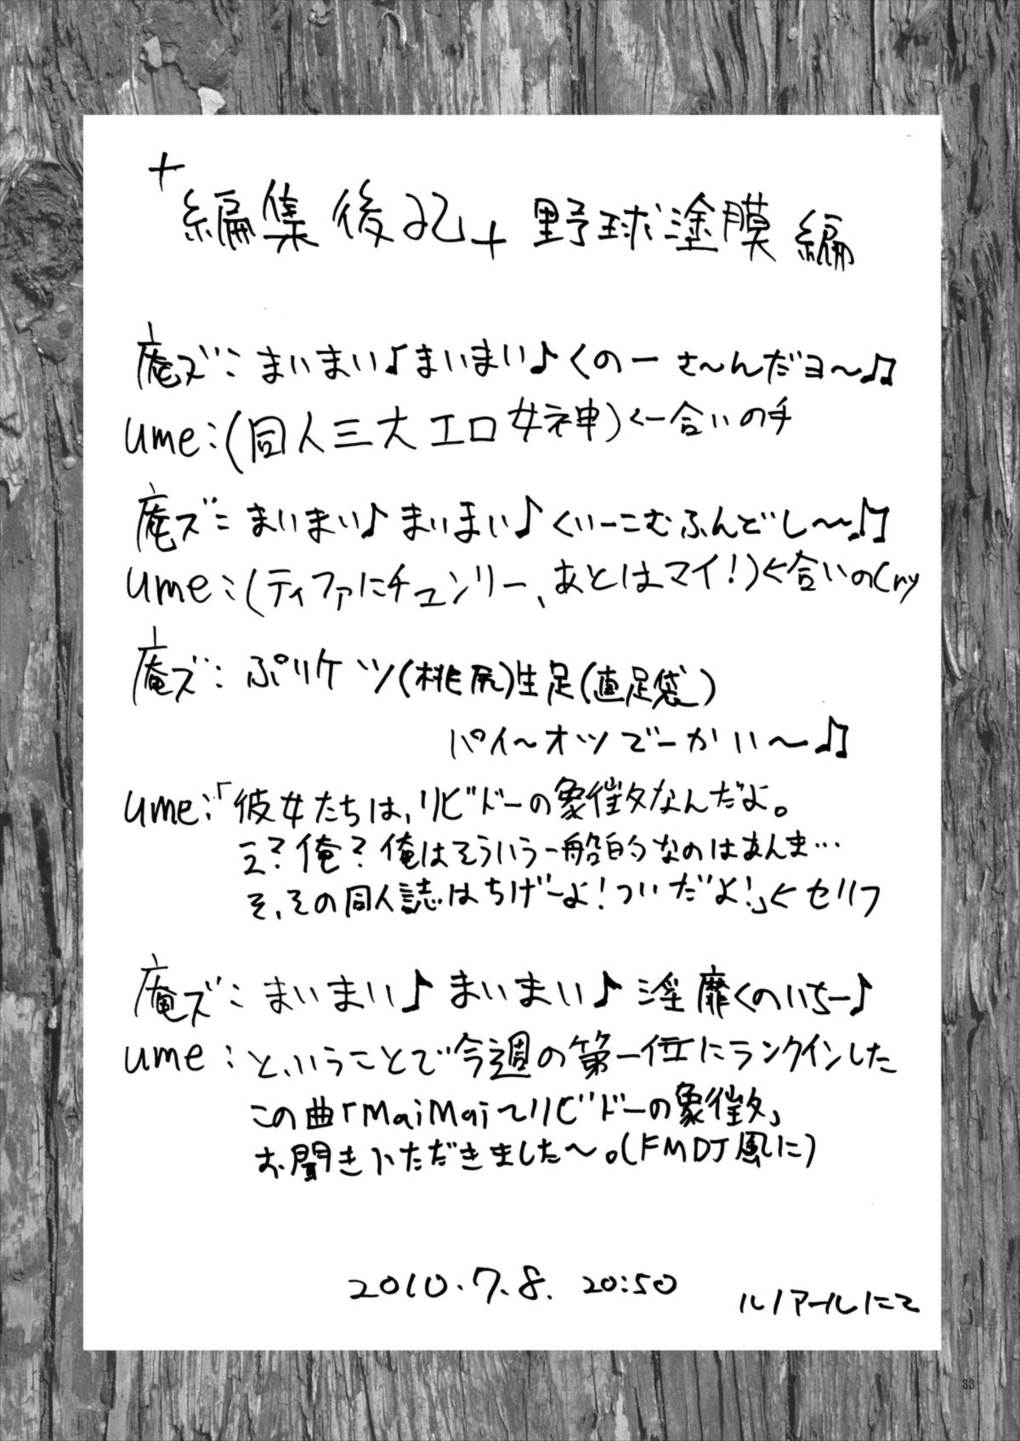 +編集後記+ 野球塗膜編
庵ズ:まいまい♪まいまい♪くのーさ〜んだヨ〜♫
ume:(同人三大エロ女神)←合いの手
庵ズ:まいまい♪まいまい♪くいーこむふんどし〜♫
ume:(ティファにチュンリー、あとはマイ!)←合いのCry
庵ズ:ぷりケツ(桃尻)生足(直足袋)
パイ〜オツでーかい〜♫
ume:「彼女たちは、リビドーの象徴タなんだよ。
え?俺?俺はそういう一般的なのはあんま…
そ、その同人誌はちげーよ!ついだよ!」←セリフ
庵ズ:まいまい♪まいまい♪淫靡くのいちー♪
ume:と、いうことで今週の第一位にランクインした
この曲「MaiMai〜リビドーの象徴タ」
お聞きいただきました〜。(FMDJ風に)
2010.7.8. 20:50
ルノアールにて
33